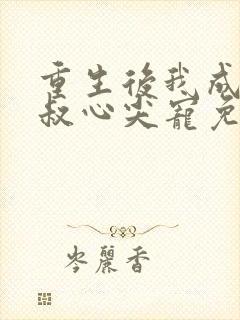 重生後我成
叔心尖寵免
岑麗香